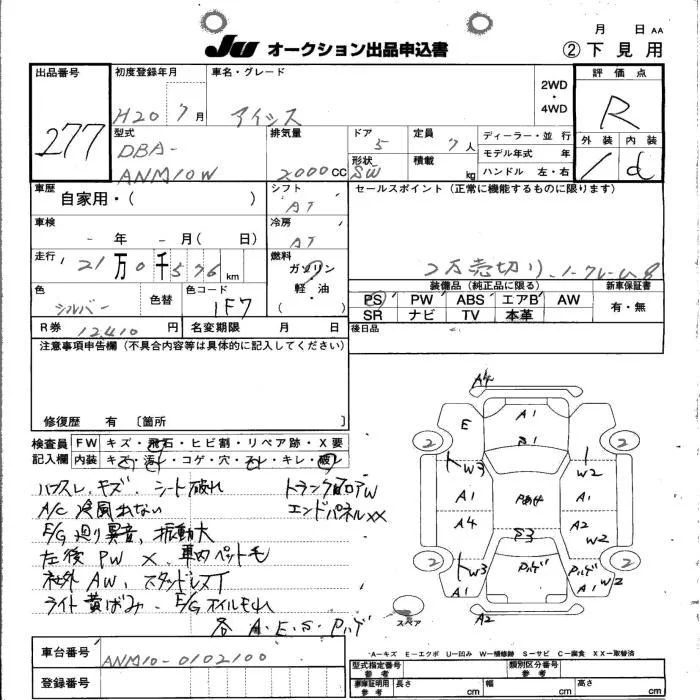 月 日 AA
JU オークション出品申込書
② 下見用
出品番号
277
初度登録年月
H20 7月
車名・グレード
アイシス
2WD
・
4WD
評価点
R
外装
内装
1
d
型式
DBA-
ANM10W
排気量
2000CC
ドア
5
形状
SW
定員
7人
積載
kg
ディーラー・並行
モデル年式 年
ハンドル 左・右
車歴
自家用・( )
シフト
AT
セールスポイント (正常に機能するものに限ります)
2万売切り
車検
- 年 - 月( 日)
冷房
AT
走行
21万0千576km
燃料
ガソリン
・
軽・油
( )
色
シルバー
色替
色コード
1F7
装備品 (純正品に限る)
新車保証書
PS PW ABS エアB AW
SR ナビ TV 本革
有・無
R券 12410 円
名変期限 月 日
後日品
注意事項申告欄 (不具合内容等は具体的に記入してください)
修復歴 有 [箇所 ]
検査員記入欄
FW キズ・飛石・ヒビ割・リペア跡・X要
内装 キズ・汚れ・コゲ・穴・スレ・キレ・破レ
ハクスレ・キズ・シート破れ
トランクフロアW
A/C 冷風出ない
エンドパネルXX
E/G 廻り異音、振動大
左後 PW × 車内ペット毛
社外 AW、スタッドレスT
ライト黄ばみ、E/Gオイルもれ
各 A・E・S・Pハゲ
A4
E
A1
B1
2
2
W3
W2
A1
Pあせ
A1
A4
A2
S3
W3
A1
Pハゲ
Pハゲ
A1
W2
2
2
スペア
A2
A-キズ E-エクボ U-凹み W-補修跡 S-サビ C-腐食 XX-取替済
車台番号
ANM10-0102100
登録番号
型式指定番号
参考
類別区分番号
参考
車庫証明用
参考
長さ cm
幅 cm
高さ cm